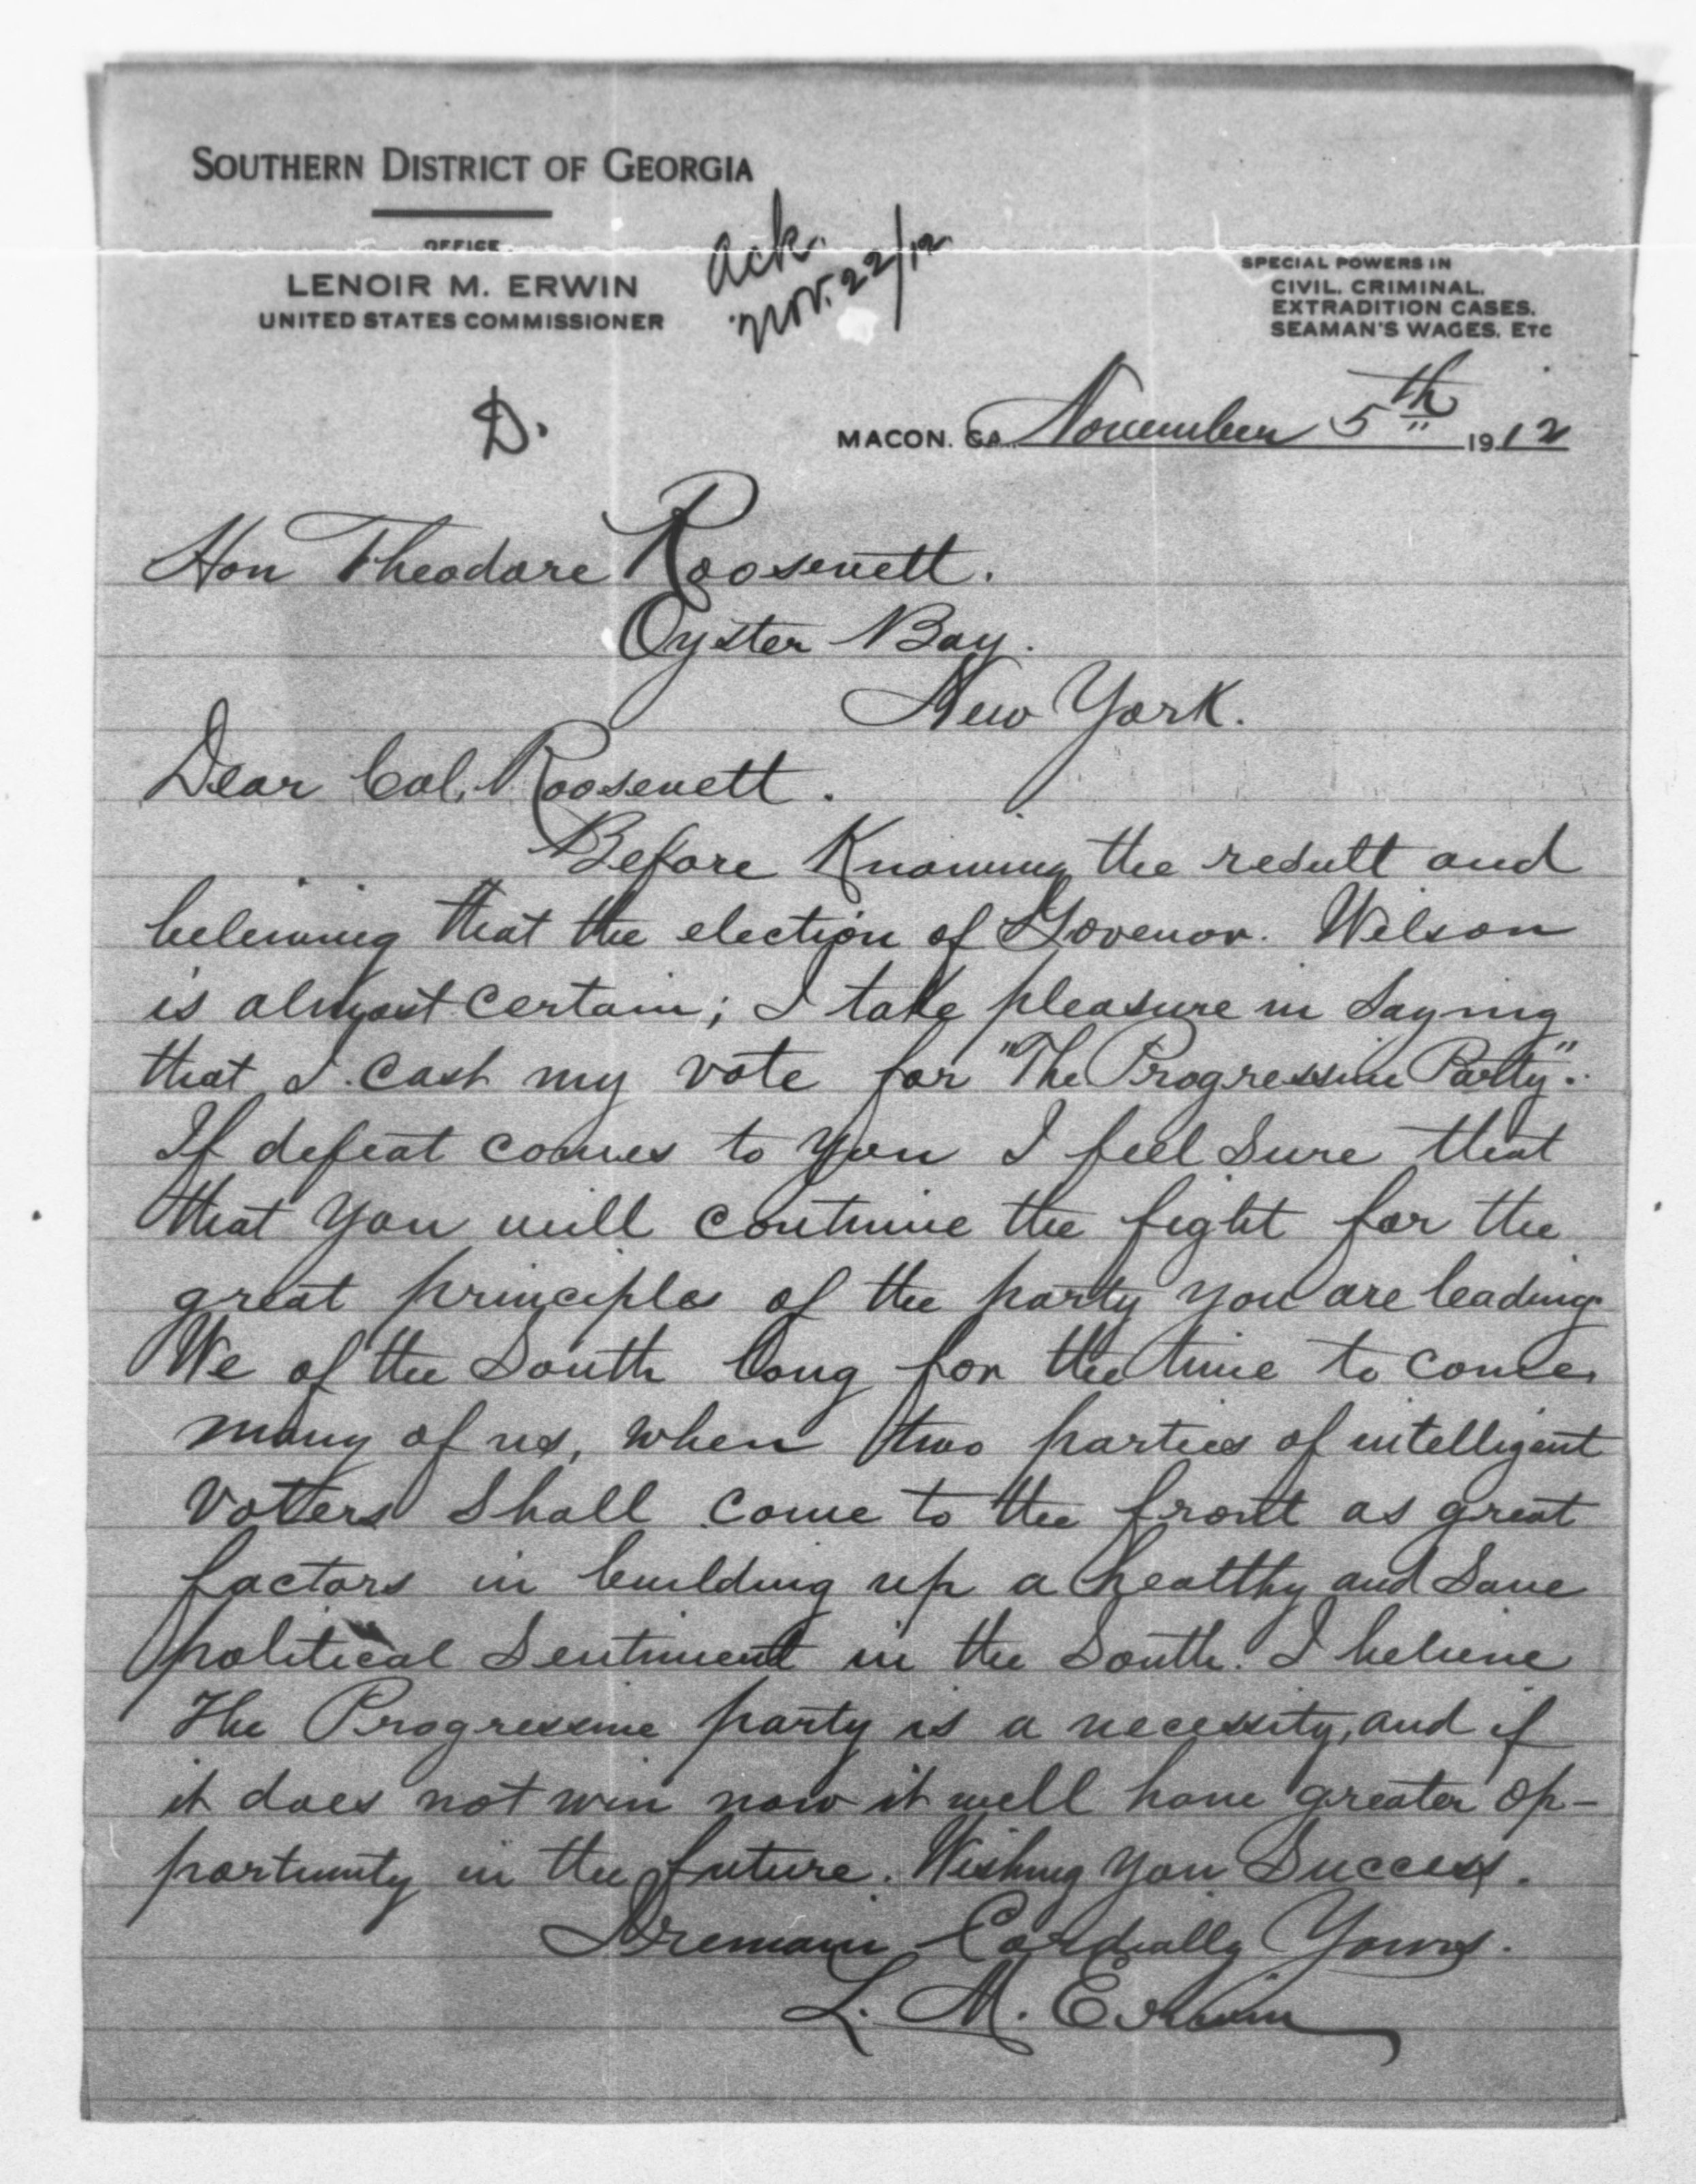 SOUTHERN DISTRICT OF GEORGIA
OFFICE
LENOIR M. ERWIN
UNITED STATES COMMISSIONER
Ack.
Nov. 22/12
SPECIAL POWERS IN
CIVIL, CRIMINAL,
EXTRADITION CASES,
SEAMAN'S WAGES, ETC
D.
MACON, GA. November 5th 1912
Hon Theodore Roosevelt.
Oyster Bay.
New York.
Dear Col. Roosevelt.
Before Knowing the result and
believing that the election of Govenor. Wilson
is almost certain; I take pleasure in saying
that I cast my vote for "The Progressive Party".
If defeat comes to you I feel sure that
that you will continue the fight for the
great principles of the party you are leading
We of the South long for the time to come,
many of us, when two parties of intelligent
voters shall come to the front as great
factors in building up a healthy and sane
political sentiment in the South. I believe
The Progressive party is a necessity, and if
it does not win now it will have greater op-
portunity in the future. Wishing you success.
I remain Cordially Yours.
L. M. Erwin